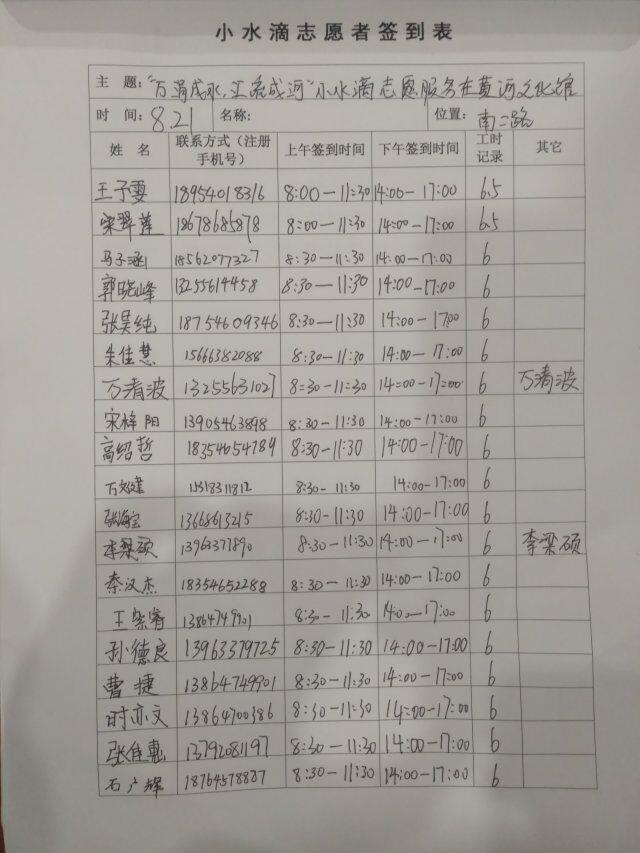 小水滴志愿者签到表
主 题: "万涓成水,汇流成河"小水滴志愿服务在黄河文化馆
时 间: 8.21 名称: 位置: 南二路
姓 名 联系方式(注册手机号) 上午签到时间 下午签到时间 工时记录 其它
王子雯 18954018316 8:00-11:30 14:00-17:00 6.5
宋翠莲 18678685878 8:00-11:30 14:00-17:00 6.5
马子涵 18562077327 8:30-11:30 14:00-17:00 6
郭晓峰 13255614458 8:30-11:30 14:00-17:00 6
张昊纯 18754609346 8:30-11:30 14:00-17:00 6
朱佳慧 15666382088 8:30-11:30 14:00-17:00 6
万清波 13255631027 8:30-11:30 14:00-17:00 6 万清波
宋梓阳 13905463898 8:30-11:30 14:00-17:00 6
高绍哲 18354654789 8:30-11:30 14:00-17:00 6
8:30-11:30 14:00-17:00 6
13668613215 8:30-11:30 14:00-17:00 6
李梁硕 13963377890 8:30-11:30 14:00-17:00 6 李梁硕
秦汉杰 18354652288 8:30-11:30 14:00-17:00 6
13864749901 8:30-11:30 14:00-17:00 6
孙德良 13963379725 8:30-11:30 14:00-17:00 6
曹捷 13864749901 8:30-11:30 14:00-17:00 6
时亦文 13864700386 8:30-11:30 14:00-17:00 6
张佳惠 13792081197 8:30-11:30 14:00-17:00 6
石广辉 18764578887 8:30-11:30 14:00-17:00 6